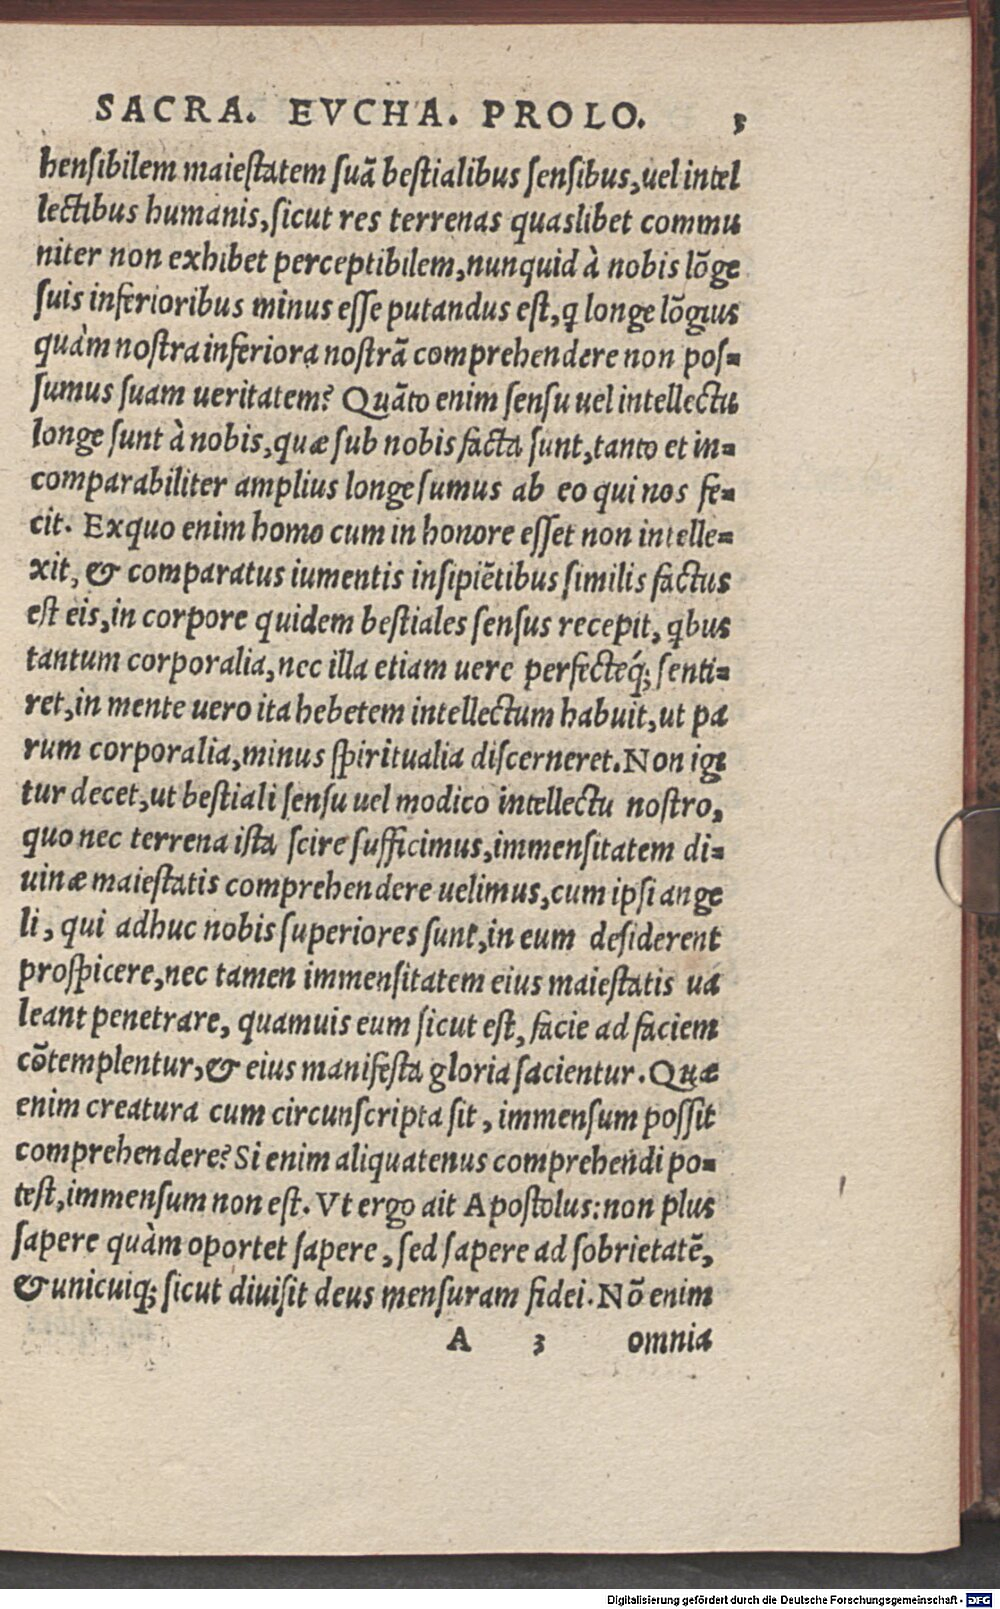 SACRA. EVCHA. PROLO. 3
hensibilem maiestatem suā bestialibus sensibus, uel intel
lectibus humanis, sicut res terrenas quaslibet commu
niter non exhibet perceptibilem, nunquid à nobis lōge
suis inferioribus minus esse putandus est, ꝗ longe lōgius
quàm nostra inferiora nostrā comprehendere non pos-
sumus suam ueritatem? Quāto enim sensu uel intellectu
longe sunt à nobis, quæ sub nobis facta sunt, tanto et in-
comparabiliter amplius longe sumus ab eo qui nos fe-
cit. Exquo enim homo cum in honore esset non intelle-
xit, & comparatus iumentis insipiētibus similis factus
est eis, in corpore quidem bestiales sensus recepit, ꝗbus
tantum corporalia, nec illa etiam uere perfecteq́; senti-
ret, in mente uero ita hebetem intellectum habuit, ut pa
rum corporalia, minus spiritualia discerneret. Non igi
tur decet, ut bestiali sensu uel modico intellectu nostro,
quo nec terrena ista scire sufficimus, immensitatem di-
uinæ maiestatis comprehendere uelimus, cum ipsi ange
li, qui adhuc nobis superiores sunt, in eum desiderent
prospicere, nec tamen immensitatem eius maiestatis ua
leant penetrare, quamuis eum sicut est, facie ad faciem
cōtemplentur, & eius manifesta gloria sacientur. Quæ
enim creatura cum circunscripta sit, immensum possit
comprehendere? Si enim aliquatenus comprehendi po-
test, immensum non est. Vt ergo ait Apostolus: non plus
sapere quàm oportet sapere, sed sapere ad sobrietatē,
& unicuiq; sicut diuisit deus mensuram fidei. Nō enim
A 3 omnia
Digitalisierung gefördert durch die Deutsche Forschungsgemeinschaft - DFG